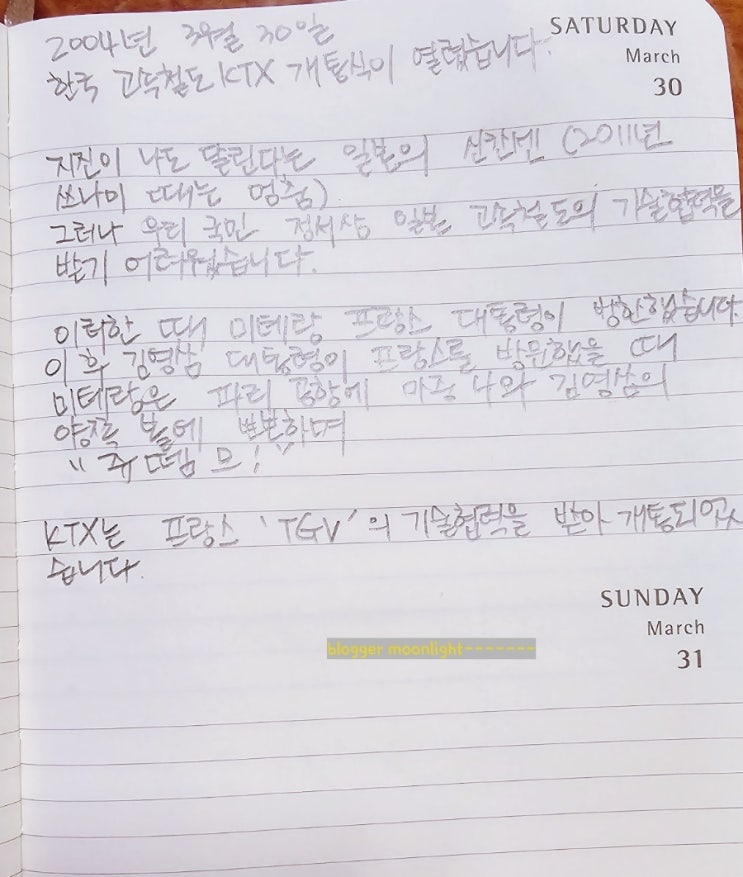 SATURDAY
March
30
2004년 3월 30일
한국 고속철도 KTX 개통식이 열렸습니다.
지진이 나도 달린다는 일본의 신칸센 (2011년
쓰나미 때는 멈춤)
그러나 우리 국민 정서상 일본 고속철도의 기술협력을
받기 어려웠습니다.
이러한 때 미테랑 프랑스 대통령이 방한했습니다.
이 후 김영삼 대통령이 프랑스를 방문했을 때
미테랑은 파리 공항에 마중 나와 김영삼의
양쪽 볼에 뽀뽀하며
"쥬 떼임 므!
KTX는 프랑스 'TGV'의 기술협력을 받아 개통되었
습니다.
SUNDAY
March
31
blogger moonlight-------